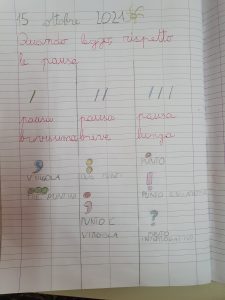 15 ottobre 2021
Quando leggo rispetto
le pause
/ // ///
pausa pausa pausa
brevissima breve lunga
, : .
VIRGOLA DUE PUNTI PUNTO
... ; !
PUNTINI PUNTO E PUNTO ESCLAMATIVO
VIRGOLA ?
PUNTO
INTERROGATIVO